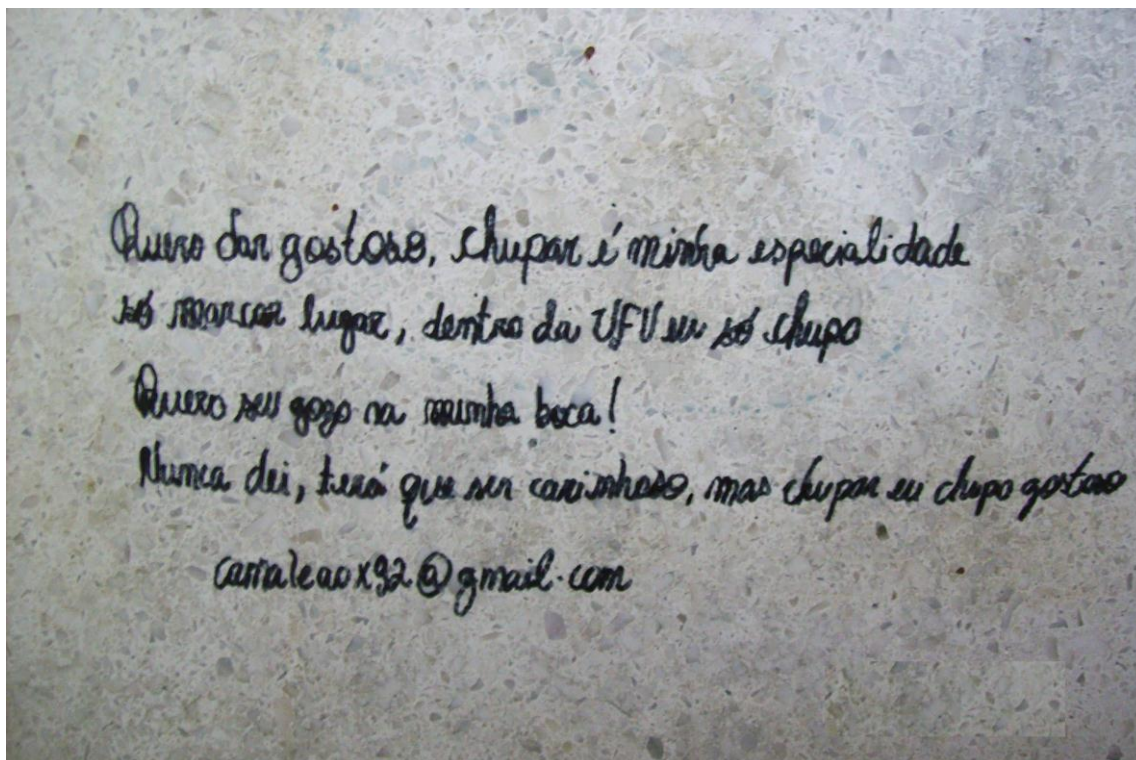 Quero dar gostoso, chupar é minha especialidade
só marcar lugar, dentro da UFV eu só chupo
Quero seu gozo na minha boca!
Nunca dei, terá que ser carinhoso, mas chupar eu chupo gostoso
camaleaox92@gmail.com